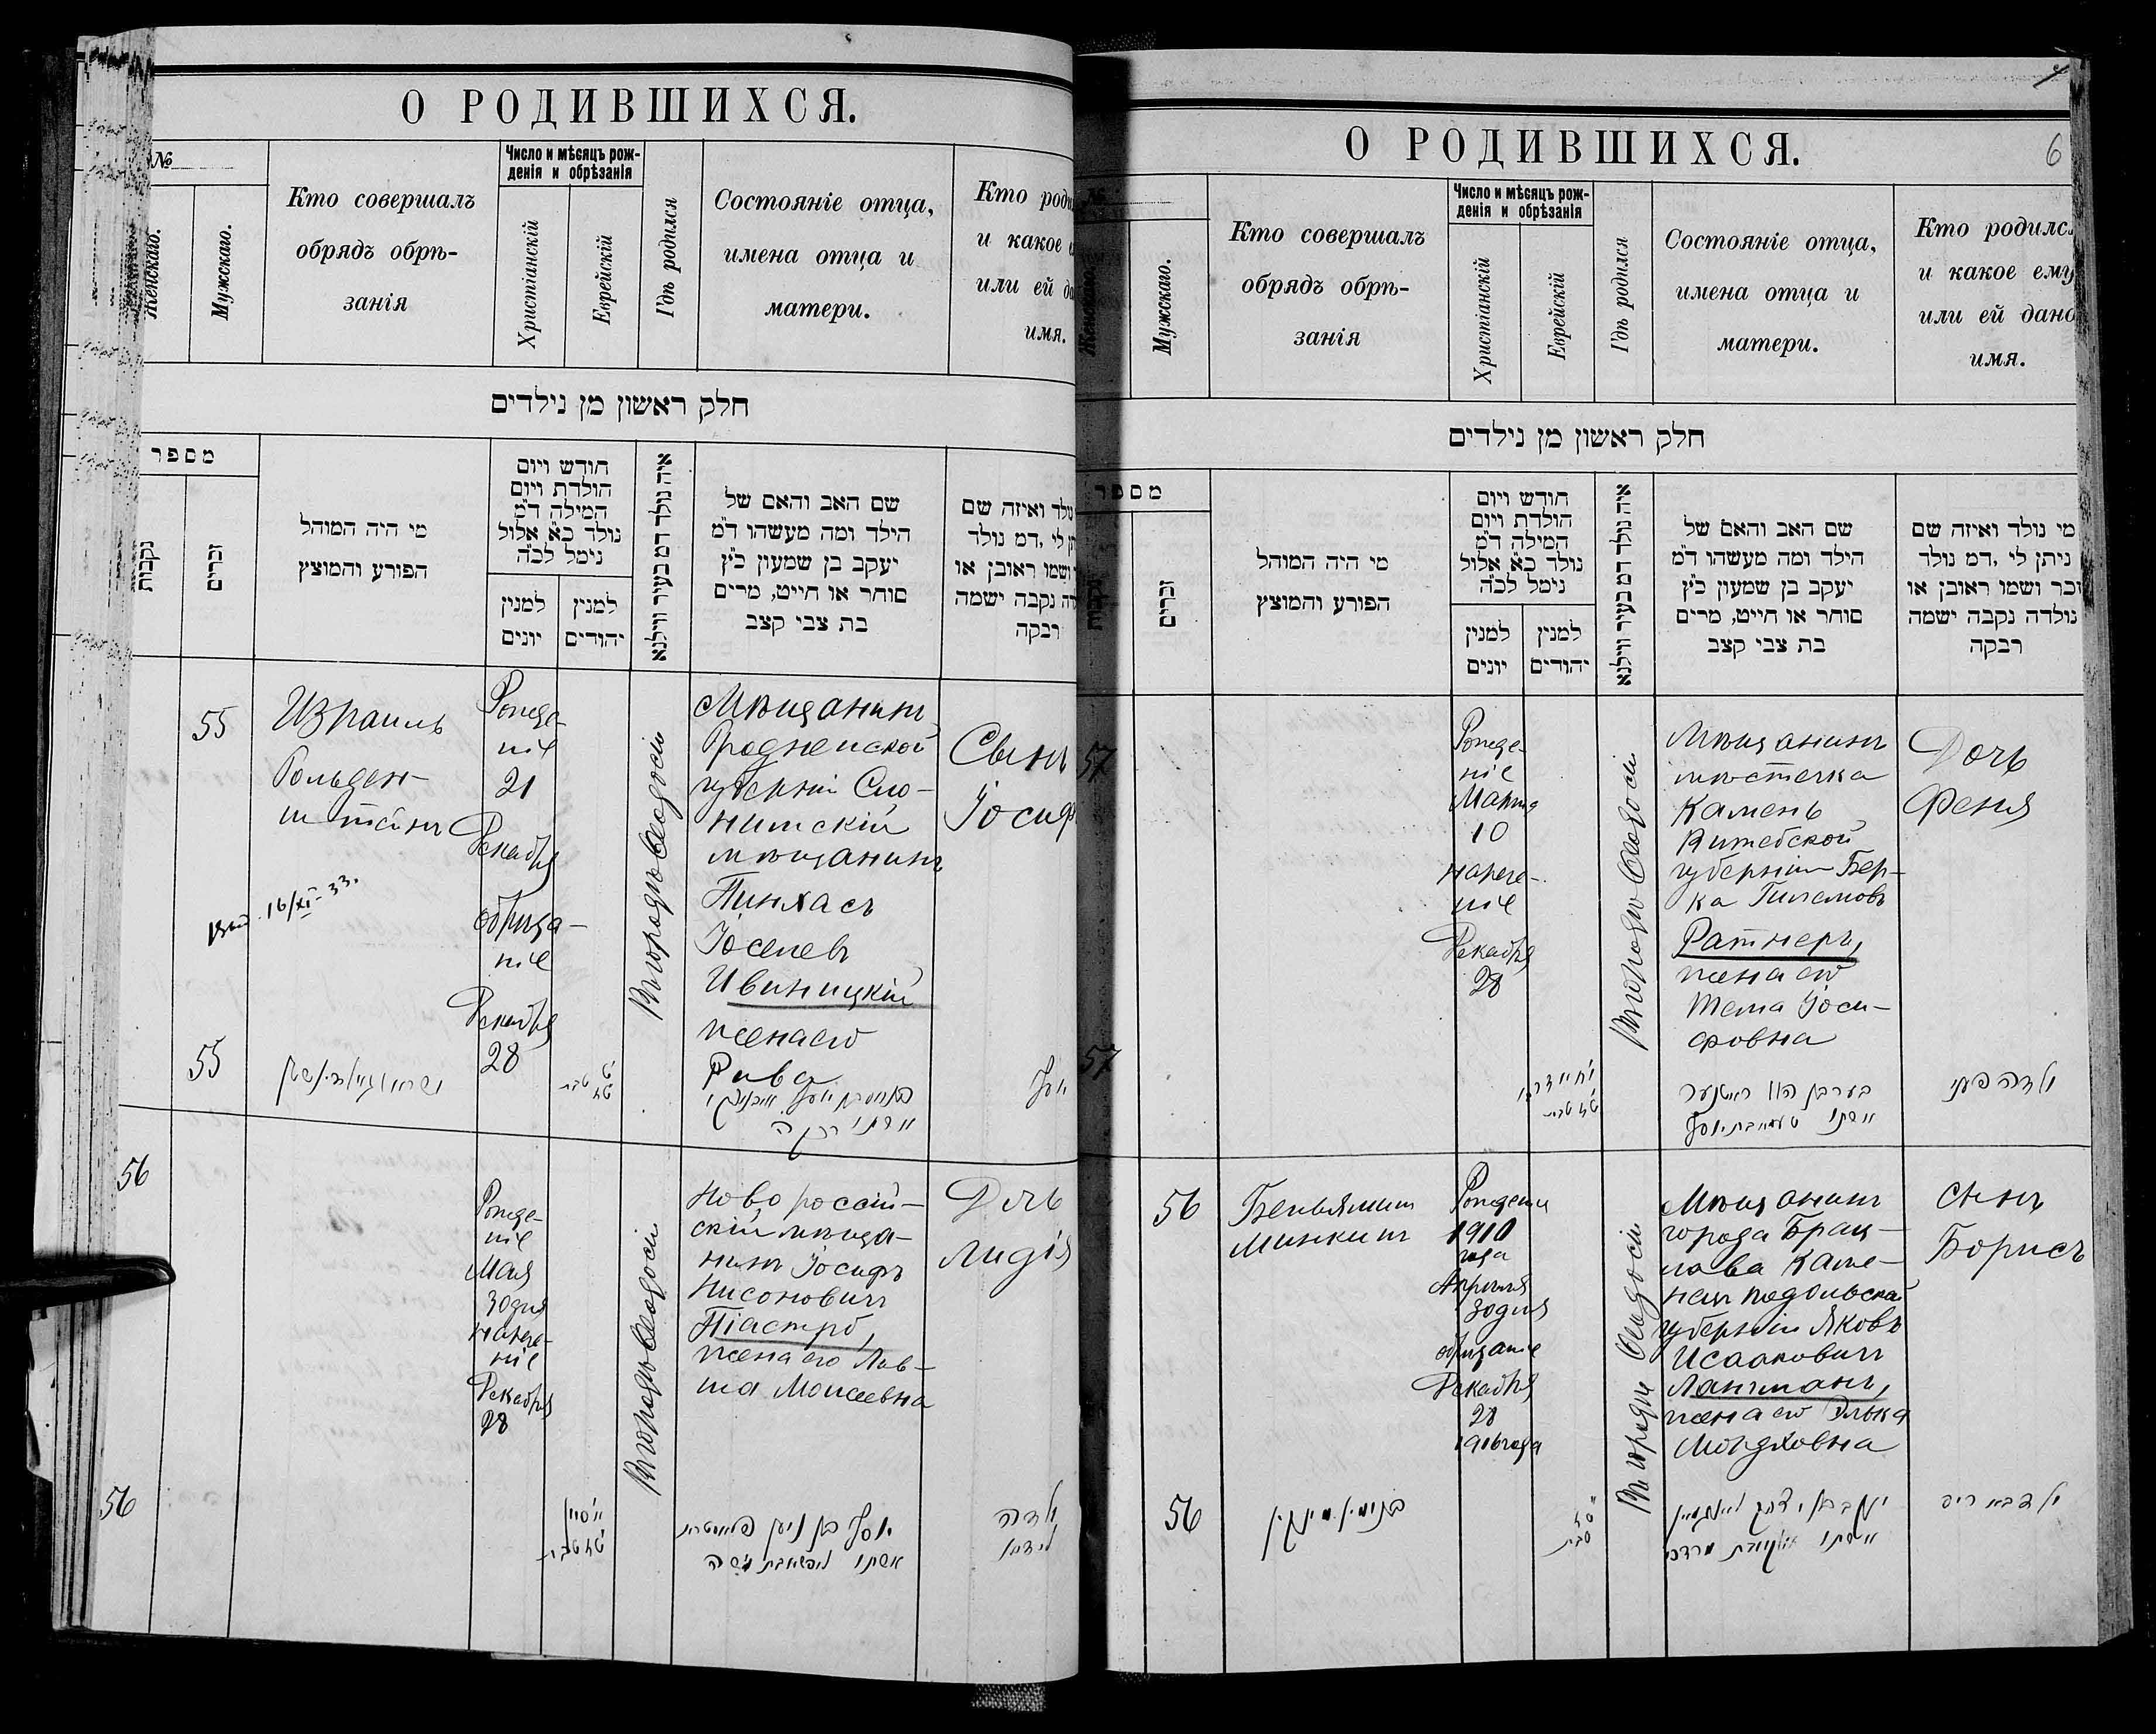 О РОДИВШИХСЯ.
№
Женскаго.
Мужскаго.
Кто совершалъ
обрядъ обрѣ-
занія
Число и мѣсяцъ рож-
денія и обрѣзанія
Христіанскій
Еврейскій
Гдѣ родился
Состояніе отца,
имена отца и
матери.
Кто роди
и какое
или ей да
имя.
חלק ראשון מן נילדים
מספר
נקבות
זכרים
מי היה המוהל
הפורע והמוצץ
חודש ויום
הולדת ויום
המילה ד״מ
נולד כ״א אלול
נימל לכ״ה
למנין
יונים
למנין
יהודים
איה נולד דמ בעיר ווילנא
שם האב והאם של
הילד ומה מעשהו ד״מ
יעקב בן שמעון כ״ץ
סוחר או חייט, מרים
בת צבי קצב
נולד ואיזה שם
לי, דמ נולד
ושמו ראובן או
נקבה ישמה
רבקה
55
Израиль
Гольден-
штейнъ
16/XI-33.
Рожде-
ніе
21
Декабря
обрѣза-
ніе
Декабря
28
Въ городѣ Ѳеодосіи
Мѣщанинъ
Гродненской
губерніи Сло-
нимскій
мѣщанинъ
Пинхасъ
Іоселевъ
Ивиницкій
жена его
Рива
Сынъ
Іосифъ
55
56
Рожде-
ніе
Мая
30 дня
нарече-
ніе
Декабря
28
Въ городѣ Ѳеодосіи
Новороссій-
скій мѣща-
нинъ Іосифъ
Нисоновичъ
Піастро,
жена его Лив-
ша Моисеевна
Дочь
Лидія
56
יוסף בן ניסן פיאסטרא
О РОДИВШИХСЯ.
6
№
Женскаго.
Мужскаго.
Кто совершалъ
обрядъ обрѣ-
занія
Число и мѣсяцъ рож-
денія и обрѣзанія
Христіанскій
Еврейскій
Гдѣ родился
Состояніе отца,
имена отца и
матери.
Кто родился
и какое ему
или ей дано
имя.
חלק ראשון מן נילדים
מספר
נקבות
זכרים
מי היה המוהל
הפורע והמוצץ
חודש ויום
הולדת ויום
המילה ד״מ
נולד כ״א אלול
נימל לכ״ה
למנין
יונים
למנין
יהודים
איה נולד דמ בעיר ווילנא
שם האב והאם של
הילד ומה מעשהו ד״מ
יעקב בן שמעון כ״ץ
סוחר או חייט, מרים
בת צבי קצב
מי נולד ואיזה שם
ניתן לי, דמ נולד
זכר ושמו ראובן או
נולדה נקבה ישמה
רבקה
57
Рожде-
ніе
Марта
10
нарече-
ніе
Декабря
28
Въ городѣ Ѳеодосіи
Мѣщанинъ
мѣстечка
Камень
Витебской
губерніи Бер-
ка Гилемовъ
Ратнеръ,
жена его
Тема Іоси-
фовна
Дочь
Феня
57
56
Беньяминъ
Минкинъ
Рожденіе
1910
года
Апрѣля
30 дня
обрѣзаніе
Декабря
28
1916 года
Въ городѣ Ѳеодосіи
Мѣщанинъ
города Брац-
лава Каме-
нец Подольской
губерніи Яковъ
Исааковичъ
Лангманъ,
жена его Элька
Мордховна
Сынъ
Борисъ
56
בנימין מינקין